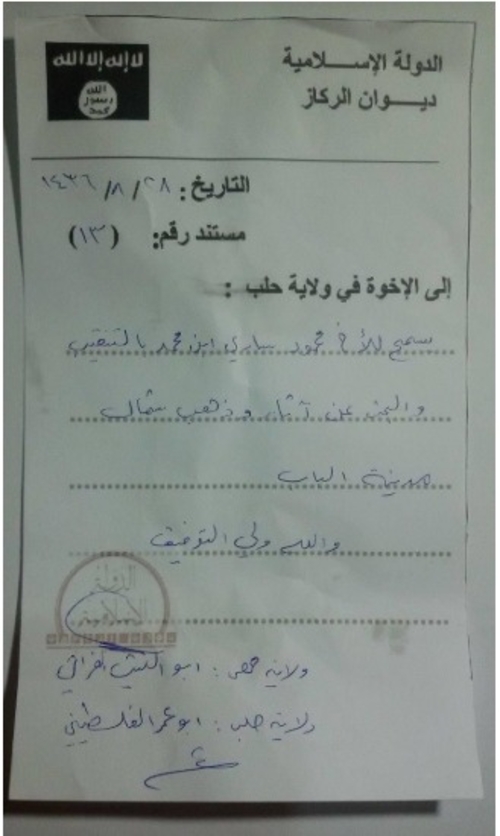 الدولة الإسلامية
ديوان الركاز
لا إله إلا الله
الله
رسول
محمد
التاريخ : ٢٨ / ٨ / ١٤٣٦
مستند رقم: (١٣)
إلى الإخوة في ولاية حلب :
يسمح للأخ محمود ساري ابن محمد بالتنقيب
والبحث عن آثار وذهب شمال
مدينة الباب
والله ولي التوفيق
الدولة
الإسلامية
ولاية حمص : ابو الليث
ولاية حلب : ابو عمر الفلسطيني